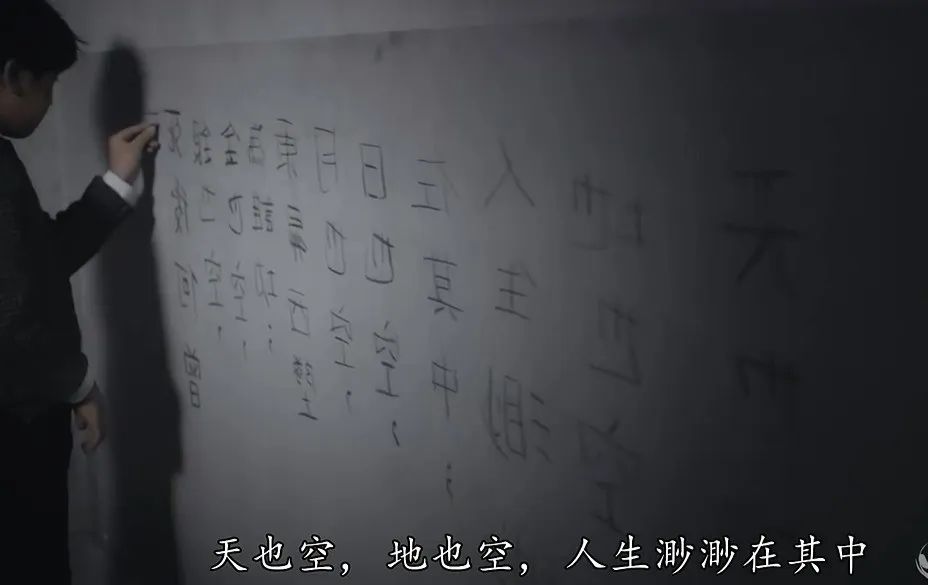 天也
地也空
人生渺
在其中；
日也空，
月也空，
東昇西墜
金也空，
銀也空，
後何曾
天也空，地也空，人生渺渺在其中